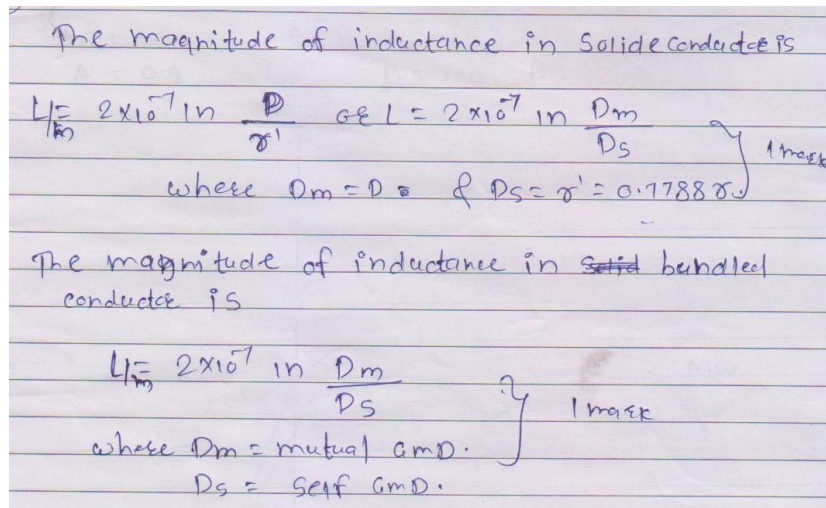 The magnitude of inductance in Solide Conductor is
L/m = 2×10⁻⁷ ln D/r' OR L = 2×10⁻⁷ ln Dm/Ds
1 mark
where Dm = D & Ds = r' = 0.7788 r
The magnitude of inductance in bundled
conductor is
L/m = 2×10⁻⁷ ln Dm/Ds
1 mark
where Dm = mutual GMD.
Ds = Self GMD.